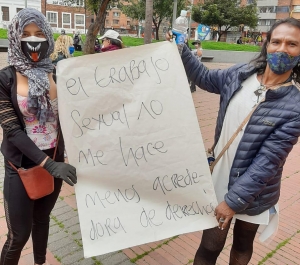 el trabajo
sexual no
me hace
menos acrede-
dora de derechos